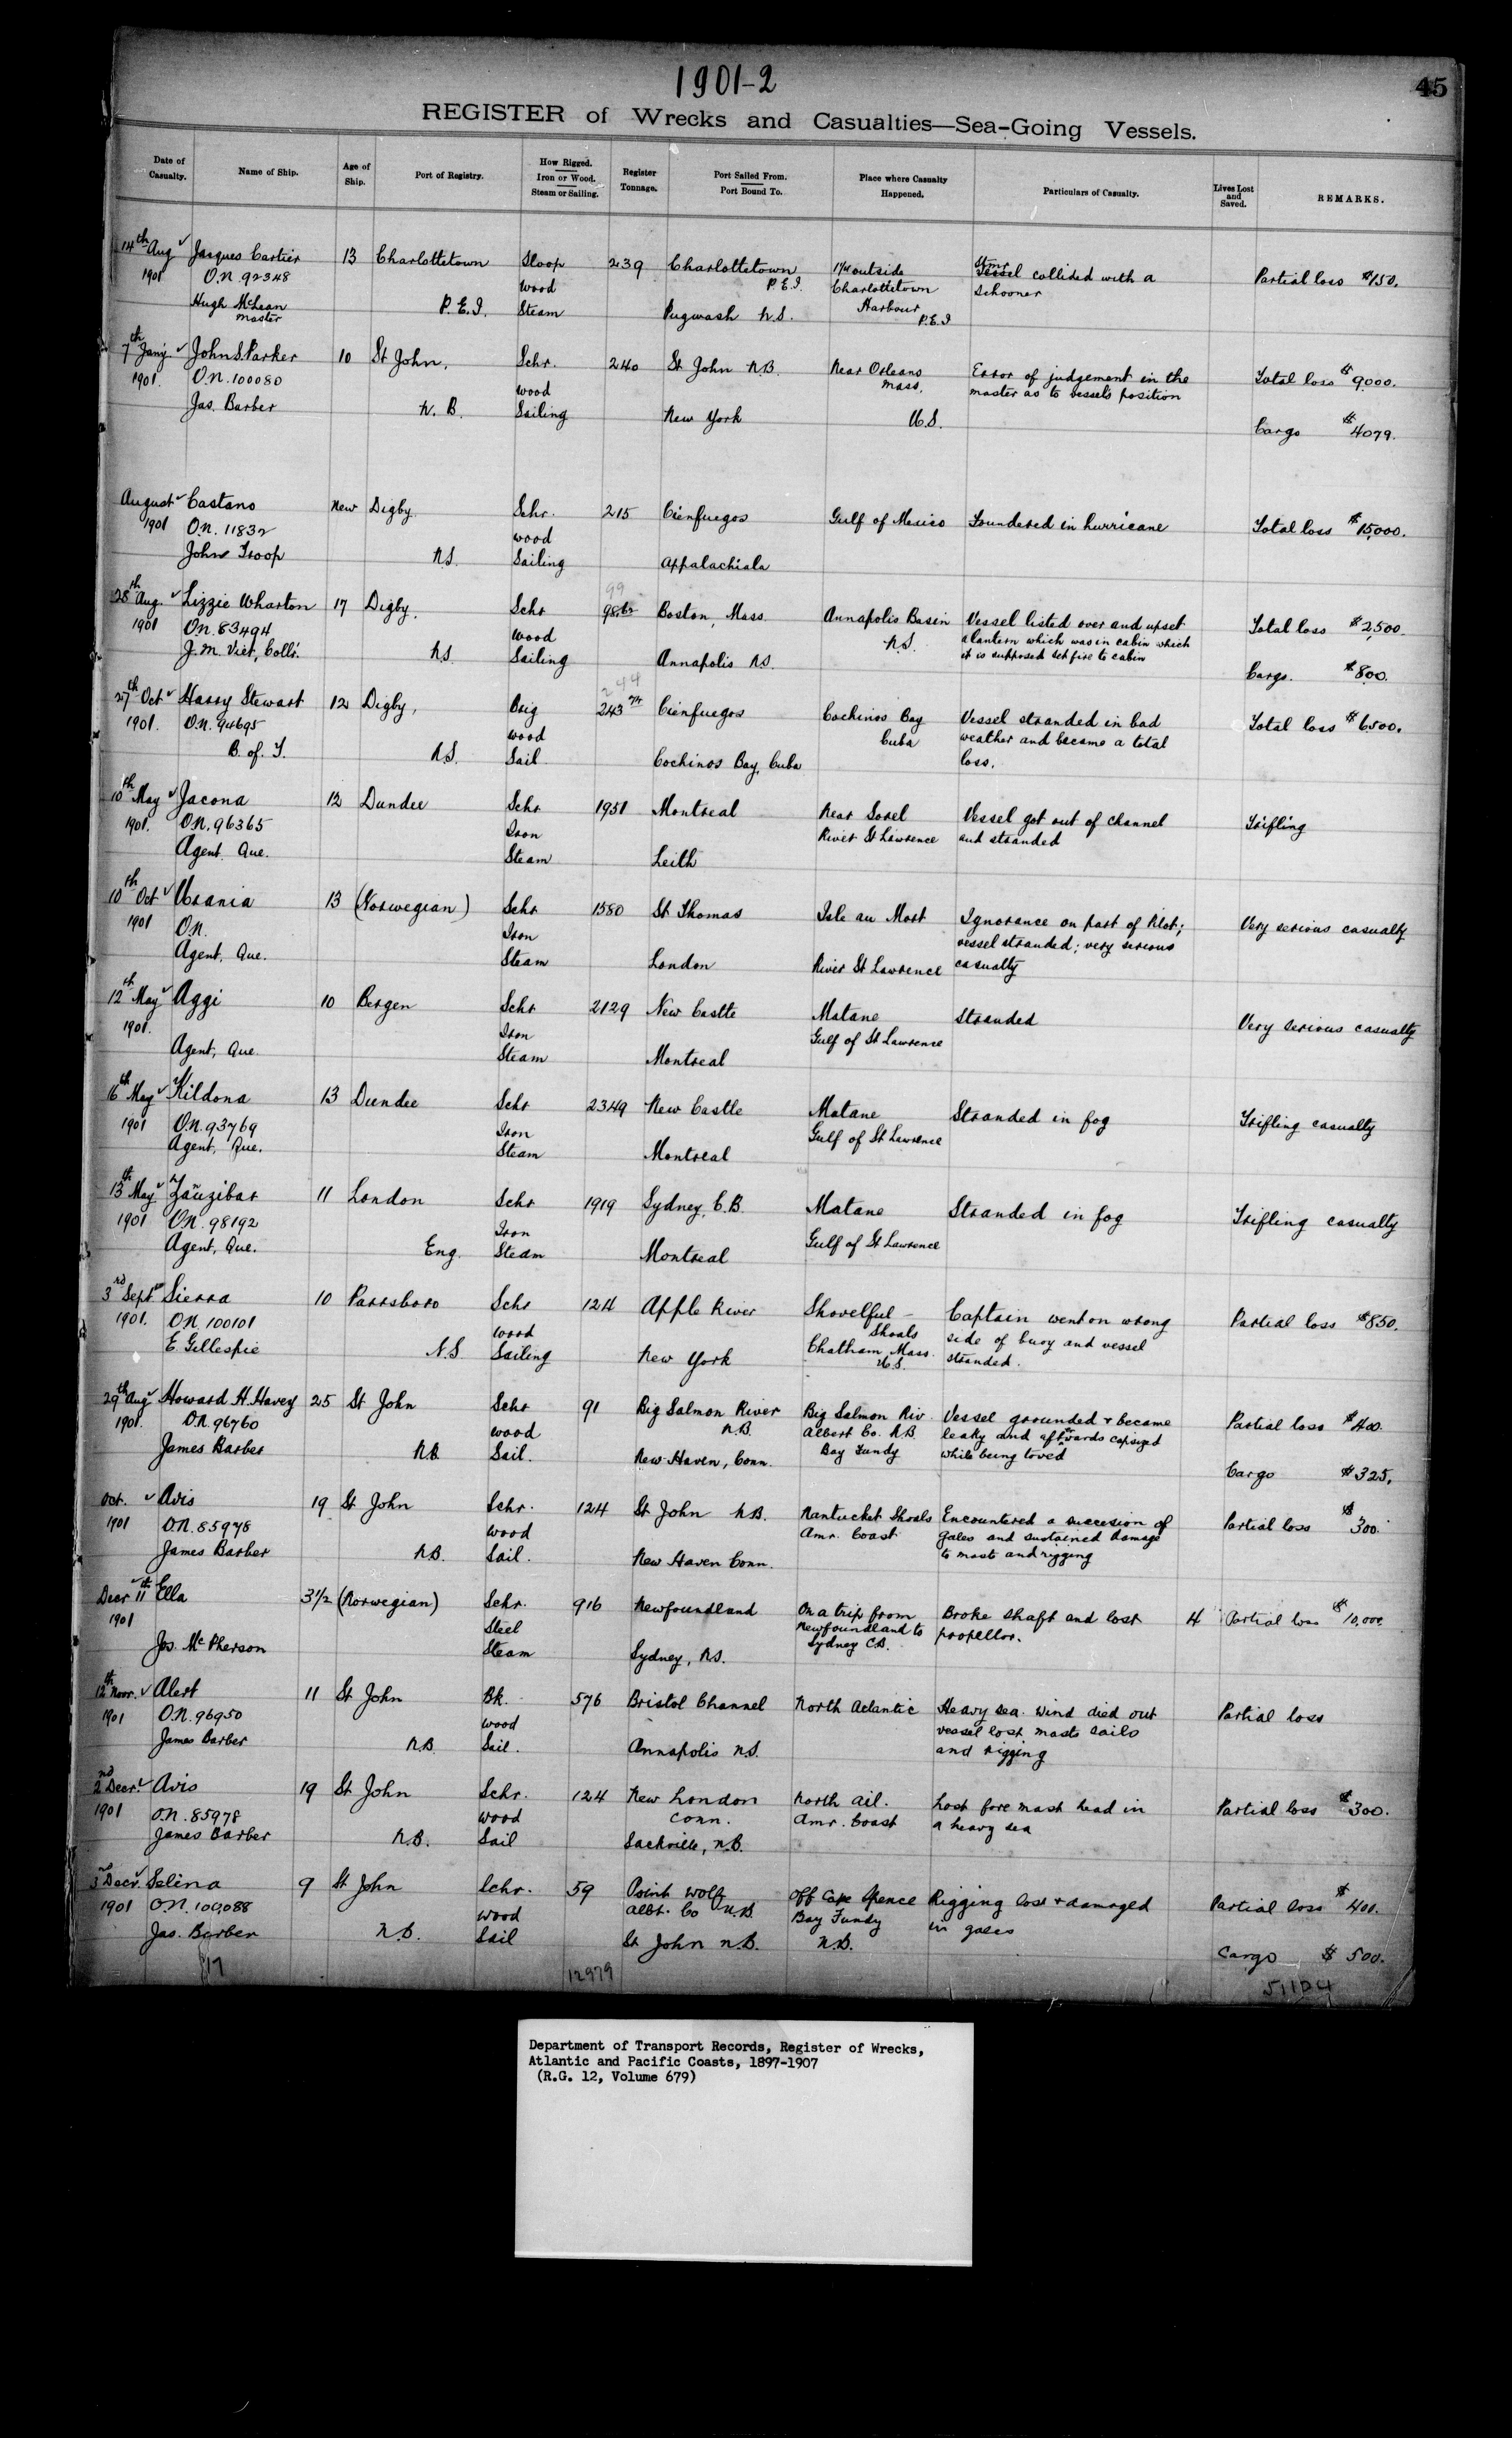 1901-2
45
REGISTER of Wrecks and Casualties—Sea-Going Vessels.
Date of Casualty. Name of Ship. Age of Ship. Port of Registry. How Rigged. Iron or Wood. Steam or Sailing. Register Tonnage. Port Sailed From. Port Bound To. Place where Casualty Happened. Particulars of Casualty. Lives Lost and Saved. REMARKS.
14th Aug Jacques Cartier 13 Charlottetown Sloop 239 Charlottetown 1/4 outside Stmr
1901 O.N. 92348 wood P.E.I. Charlottetown Vessel collided with a Partial loss $150.
Hugh McLean P.E.I. Steam Pugwash N.S. Harbour schooner
master P.E.I
7th Jany John S. Parker 10 St John, Schr. 240 St John N.B. Near Orleans Error of judgement in the Total loss $9000.
1901. O.N. 100080 wood mass. master as to vessels position
Jas. Barber N.B. Sailing New York U.S. Cargo $4079.
August Castano New Digby Schr. 215 Cienfuegos Gulf of Mexico Foundered in hurricane Total loss $15,000.
1901 O.N. 11832 wood
John Troop N.S. Sailing Appalachiala
99
28th Aug. Lizzie Wharton 17 Digby. Schr 98. Boston, Mass. Annapolis Basin Vessel listed over and upset Total loss $2,500.
1901 O.N. 83494 wood N.S. a lantern which was in cabin which
J. M. Viet, Collr. N.S. Sailing Annapolis N.S. it is supposed set fire to cabin Cargo. $800.
244
27th Oct Harry Stewart 12 Digby, Brig 243 Cienfuegos Cochinos Bay Vessel stranded in bad Total loss $6500.
1901. O.N. 94695 wood Cuba weather and became a total
B. of T. N.S. Sail Cochinos Bay, Cuba loss.
10th May Jacona 12 Dundee Schr 1951 Montreal Near Sorel Vessel got out of channel Trifling
1901. O.N. 96365 Iron River St Lawrence and stranded
Agent Que. Steam Leith
10th Oct Urania 13 (Norwegian) Schr 1580 St Thomas Isle au Mort Ignorance on part of Pilot; Very serious casualty
1901 O.N. Iron vessel stranded; very serious
Agent, Que. Steam London River St Lawrence casualty
12th May Aggi 10 Bergen Schr 2129 New Castle Matane Stranded Very serious casualty
1901. Iron Gulf of St Lawrence
Agent, Que. Steam Montreal
16th May Kildona 13 Dundee Schr 2349 New Castle Matane Stranded in fog Trifling casualty
1901 O.N. 93769 Iron Gulf of St Lawrence
Agent, Que. Steam Montreal
13th May Zanzibar 11 London Schr 1919 Sydney, C.B. Matane Stranded in fog Trifling casualty
1901 O.N. 98192 Iron Gulf of St Lawrence
Agent, Que. Eng. Steam Montreal
3rd Sept Sierra 10 Parrsboro Schr 124 Apple River Shovelful Captain went on wrong Partial loss $850.
1901. O.N. 100101 wood Shoals side of buoy and vessel
E. Gillespie N.S Sailing New York Chatham Mass. U.S. stranded.
29th Aug Howard H. Havey 25 St John Schr 91 Big Salmon River Big Salmon Riv. Vessel grounded & became Partial loss $400.
1901. O.N. 96760 wood N.B. Albert Co. N.B. leaky and afterwards capsized
James Barber N.B. Sail. New Haven, Conn. Bay Fundy while being towed Cargo $325.
Oct. Avis 19 St John Schr. 124 St John N.B. Nantucket Shoals Encountered a succesion of Partial loss $300.
1901 O.N. 85978 wood Amr. Coast gales and sustained damage
James Barber N.B. Sail. New Haven Conn. to masts and rigging
Decr 11th Ella 3½ (Norwegian) Schr. 916 Newfoundland On a trip from Broke shaft and lost 4 Partial loss $10,000.
1901 Steel Newfoundland to propellor.
Jos. McPherson Steam Sydney, N.S. Sydney C.B.
12th Novr. Alert 11 St John Bk. 576 Bristol Channel North Atlantic Heavy sea. Wind died out Partial loss
1901 O.N. 96950 wood vessel lost masts sails
James Barber N.B. Sail. Annapolis N.S. and rigging
2nd Decr. Avis 19 St John Schr. 124 New London North Atl. Lost fore mast head in Partial loss $300.
1901 O.N. 85978 wood Conn. Amr. Coast a heavy sea
James Barber N.B. Sail Sackville, N.B.
3rd Decr Selina 9 St John Schr. 59 Point Wolf off Cape Spence Rigging lost & damaged Partial loss $401.
1901 O.N. 100,088 wood Albt. Co N.B. Bay Fundy in gales
Jas. Barber N.B. Sail St John N.B. N.B. Cargo $500.
17 12979 51104
Department of Transport Records, Register of Wrecks,
Atlantic and Pacific Coasts, 1897-1907
(R.G. 12, Volume 679)